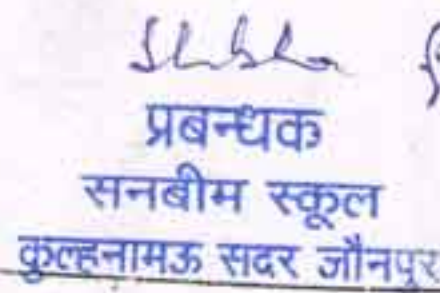 प्रबन्धक
सनबीम स्कूल
कुल्हनामऊ सदर जौनपुर